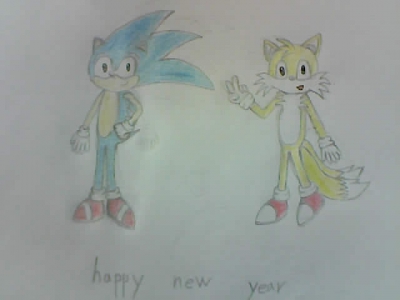 happy new year